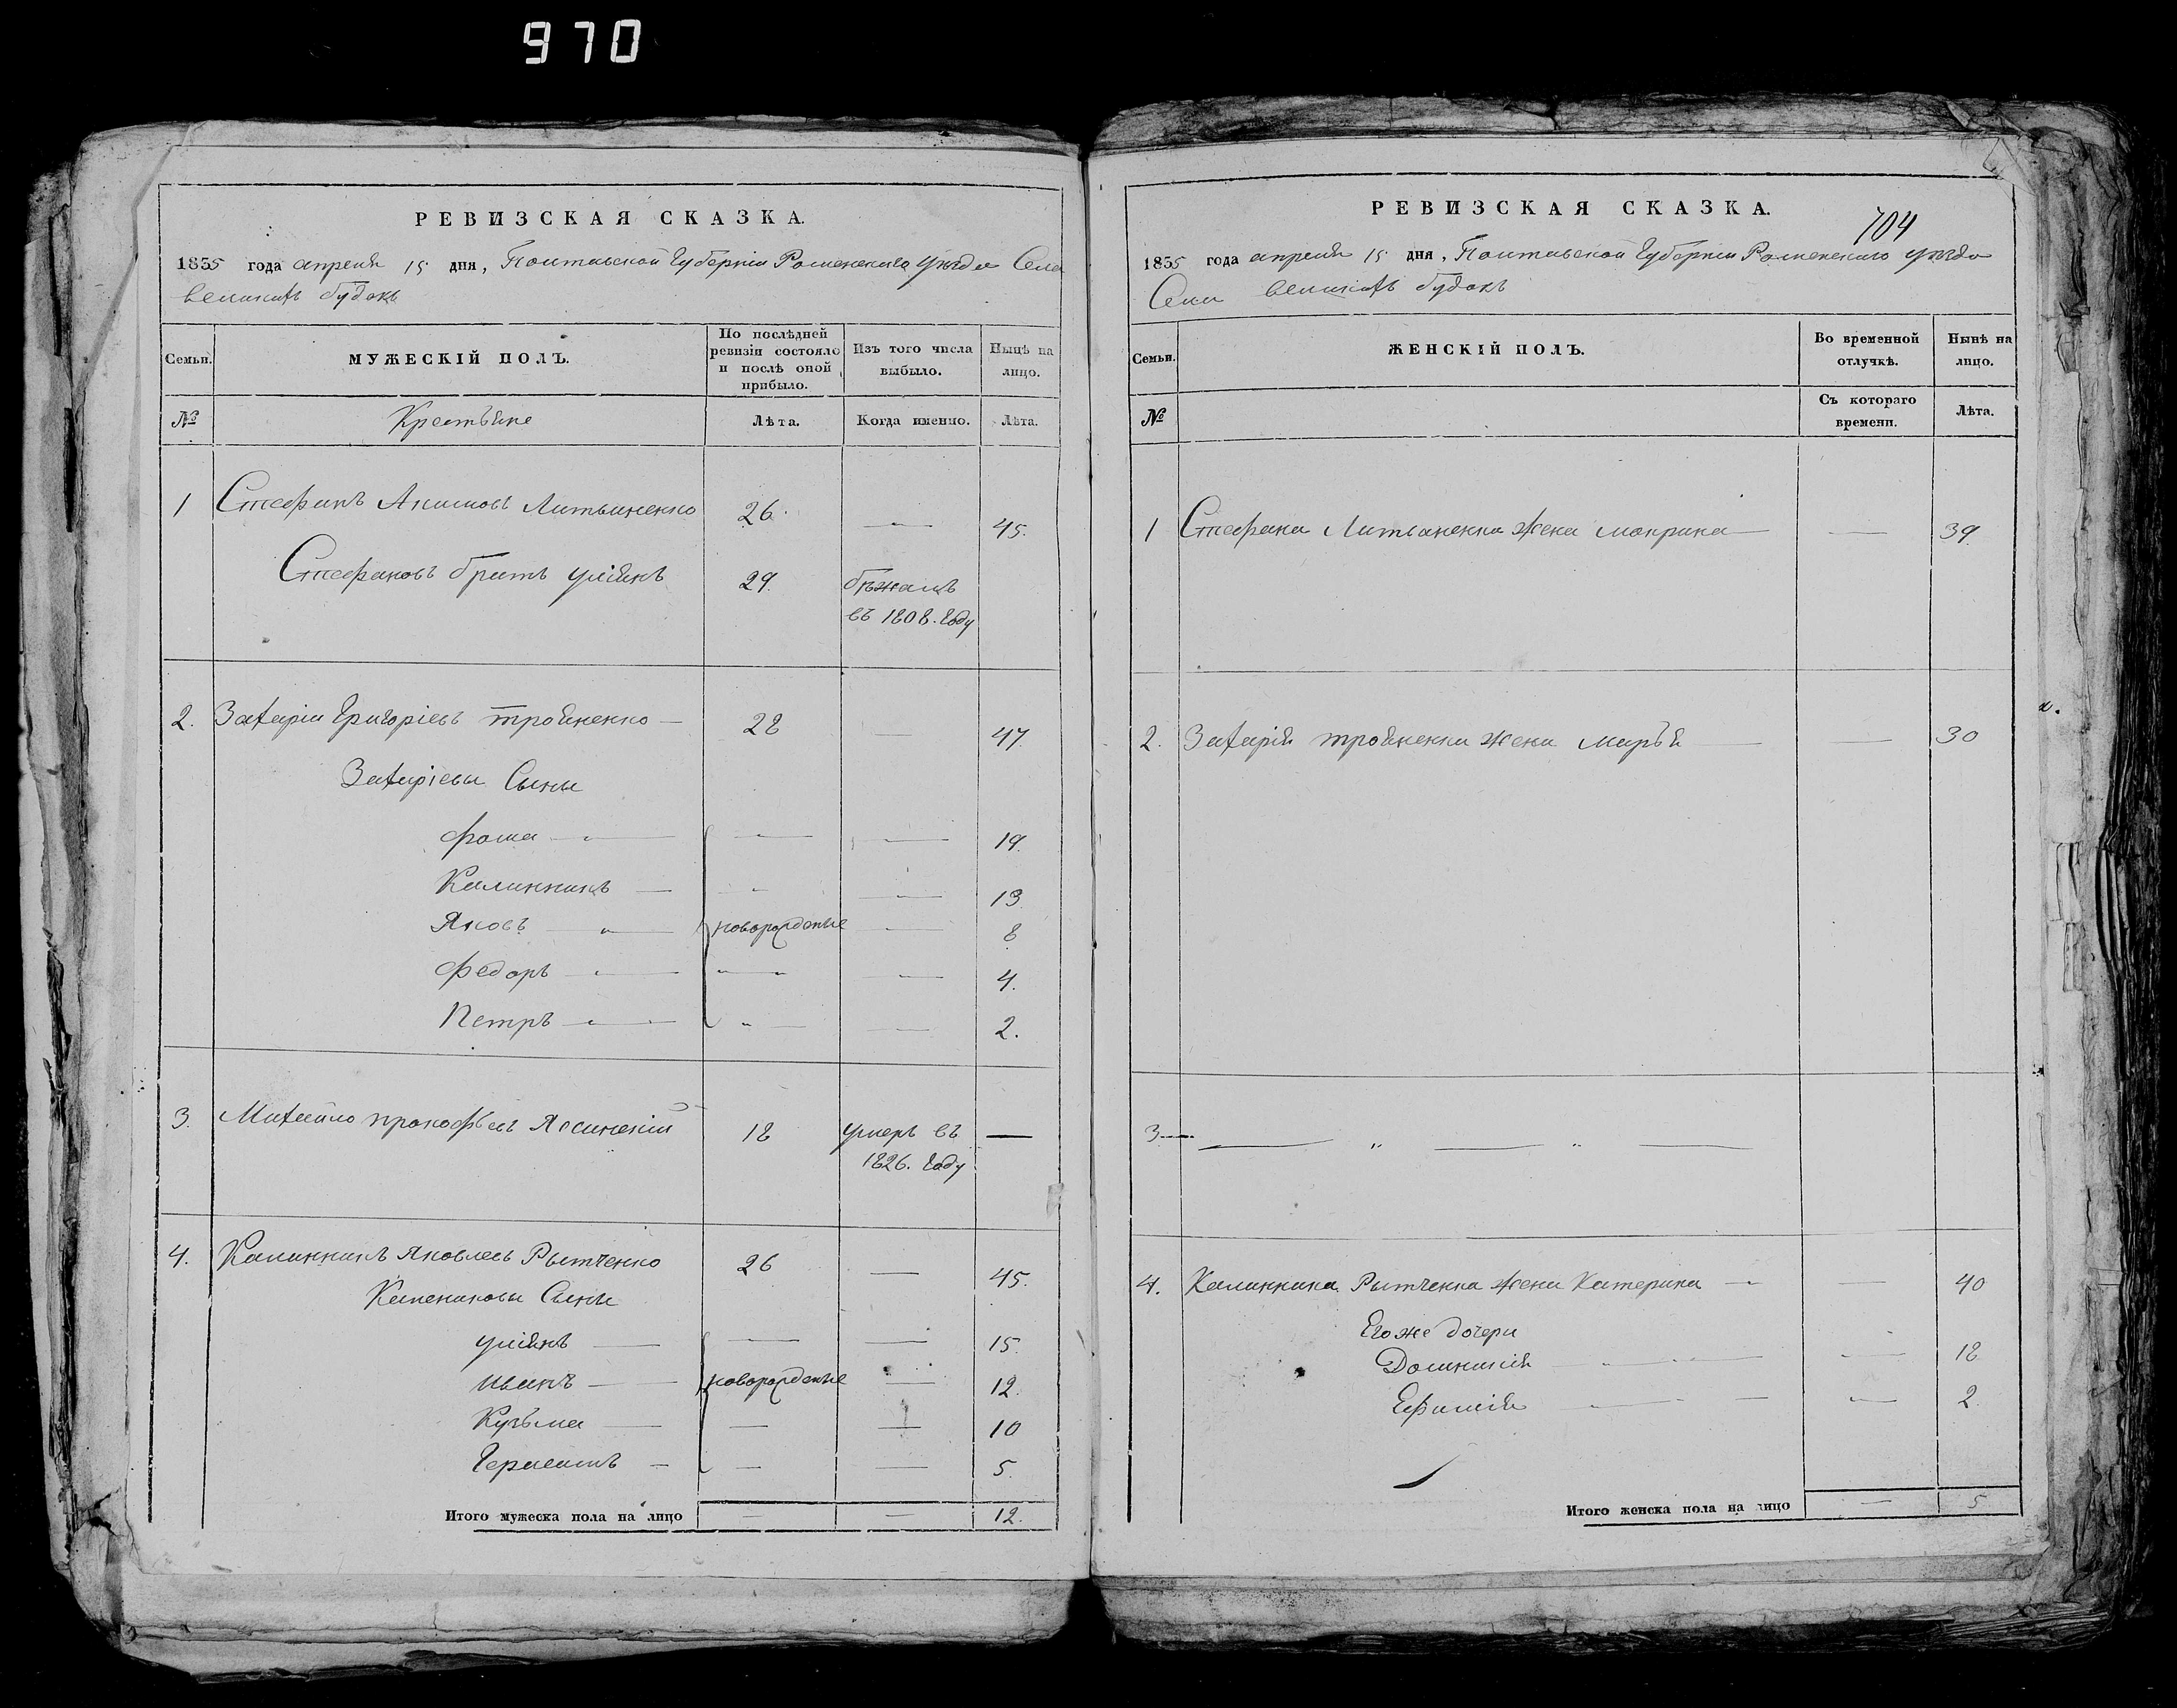 970
РЕВИЗСКАЯ СКАЗКА.
1835 года апреля 15 дня, Полтавской Губерніи Роменскаго уѣзда Села
великихъ будокъ
Семьи.
МУЖЕСКІЙ ПОЛЪ.
По послѣдней ревизіи состояло и послѣ оной прибыло.
Изъ того числа выбыло.
Нынѣ на лицо.
№
Крестьяне
Лѣта.
Когда именно.
Лѣта.
1 Стефанъ Акимовъ Литвиненко 26. — 45.
Стефановъ братъ Уліянъ 29. бѣжалъ
въ 1808. Году
2. Захарій Григоріевъ тройненко — 28 — 47.
Захаріевы Сыны
Фома — — — 19.
Калинникъ — — — 13
Яковъ — новорожденые — 8
Федоръ — — — 4.
Петръ — — — 2.
3. Михайло прокофьевъ Ясинскій 18 умеръ въ —
1826. Году
4. Калинникъ Яковлевъ Рытченко 26 — 45.
Калениковы Сыны
Уліянъ — — — 15.
Иванъ — новорожденые — 12.
Кузьма — — — 10
Герасимъ — — — 5.
Итого мужеска пола на лицо — — 12.
РЕВИЗСКАЯ СКАЗКА.
704
1835 года апреля 15 дня, Полтавской Губерніи Роменскаго уѣзда
Села великихъ будокъ
Семьи.
ЖЕНСКІЙ ПОЛЪ.
Во временной отлучкѣ.
Нынѣ на лицо.
№
Съ котораго времени.
Лѣта.
1 Стефана Литвиненка жена Макрина — — 39.
2. Захарія тройненка жена Марья — — 30
3 — „ — „ —
4. Калинника Рытченка жена Катерина — — 40
Его же дочери
Домникія — — 18
Ефимія — — 2.
Итого женска пола на лицо — 5